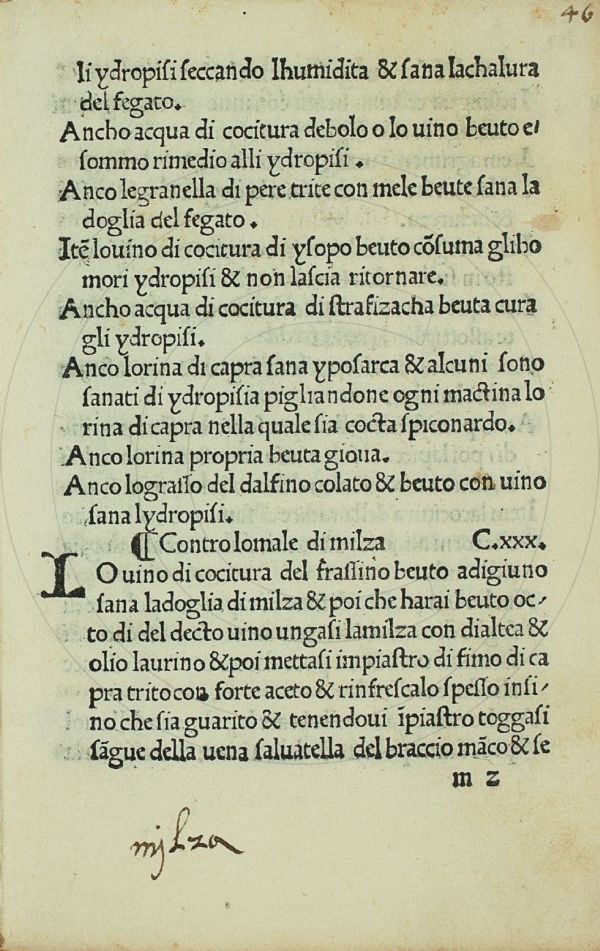 46
li ydropisi seccando lhumidita & sana lachalura
del fegato.
Ancho acqua di cocitura debolo o lo uino beuto e/
sommo rimedio alli ydropisi .
Anco legranella di pere trite con mele beute sana la
doglia del fegato .
Itē louino di cocitura di ysopo beuto cōsuma gliho
mori ydropisi & non lascia ritornare.
Ancho acqua di cocitura di strafizacha beuta cura
gli ydropisi.
Anco lorina di capra sana yposarca & alcuni sono
sanati di ydropisia pigliandone ogni mactina lo
rina di capra nella quale sia cocta spiconardo.
Anco lorina propria beuta gioua.
Anco lograsso del dalfino colato & beuto con uino
sana lydropisi.
¶ Contro lomale di milza C.xxx.
LO uino di cocitura del frassino beuto adigiuno
sana ladoglia di milza & poi che harai beuto oc/
to di del decto uino ungasi lamilza con dialtea &
olio laurino & poi mettasi impiastro di fimo di ca
pra trito con forte aceto & rinfrescalo spesso insi/
no che sia guarito & tenendoui īpiastro toggasi
sāgue della uena saluatella del braccio māco & se
m 2
milza